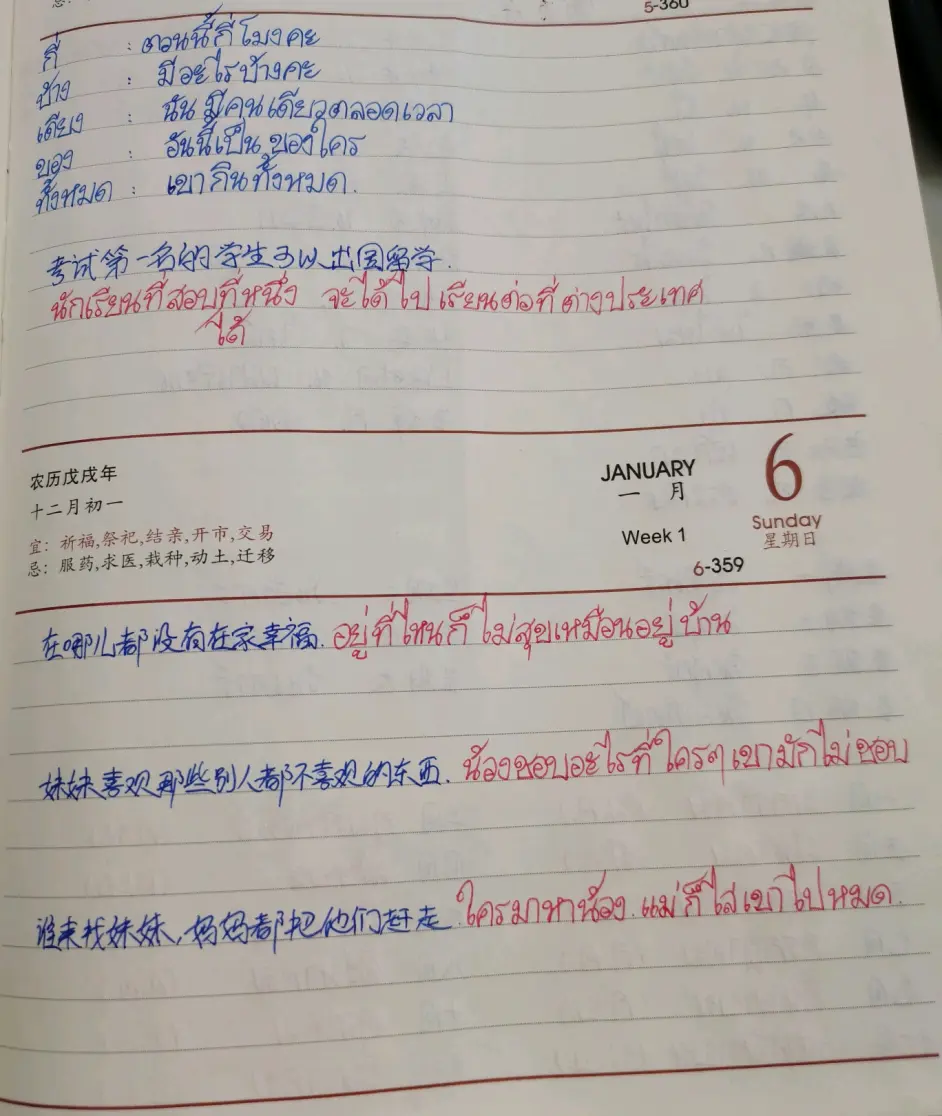 5-360
กี่ : ตอนนี้กี่โมงคะ
บ้าง : มีอะไรบ้างคะ
เดียว : ฉัน มีคนเดียวตลอดเวลา
ของ : อันนี้เป็น ของใคร
ทั้งหมด : เขากินทั้งหมด.
考试第一名的学生可以出国留学.
นักเรียนที่สอบที่หนึ่ง จะได้ไป เรียนต่อที่ต่างประเทศ
ได้
农历戊戌年
十二月初一
宜: 祈福,祭祀,结亲,开市,交易
忌: 服药,求医,栽种,动土,迁移
JANUARY
一 月
6
Week 1
Sunday
星期日
6-359
在哪儿都没有在家幸福. อยู่ที่ไหนก็ไม่สุขเหมือนอยู่บ้าน
妹妹喜欢那些别人都不喜欢的东西. น้องชอบอะไรที่ใครๆเขามักไม่ชอบ
谁来找妹妹,妈妈都把他们赶走. ใครมาหาน้อง แม่ก็ไล่เขาไปหมด.